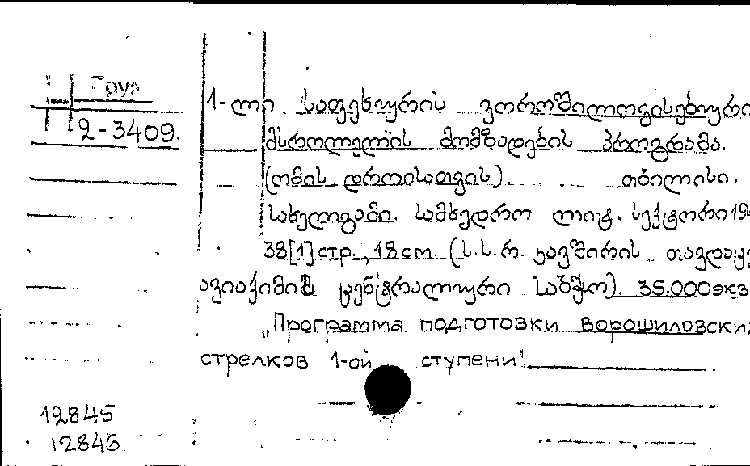 Груз
2-3409.
1-ლი საფეხურის ვოროშილოვისებური
მსროლელის მომზადების პროგრამა.
(ომის დროისათვის) თბილისი.
სახელგამი. სამხედრო ლიტ. სექტორი 19
38[1]стр. 18см (ს.ს.რ. კავშირის თავდაც
ავიაქიმის ცენტრალური საბჭო). 35.000экз
„Программа подготовки ворошиловских
стрелков 1-ой ступени".
12845
12845